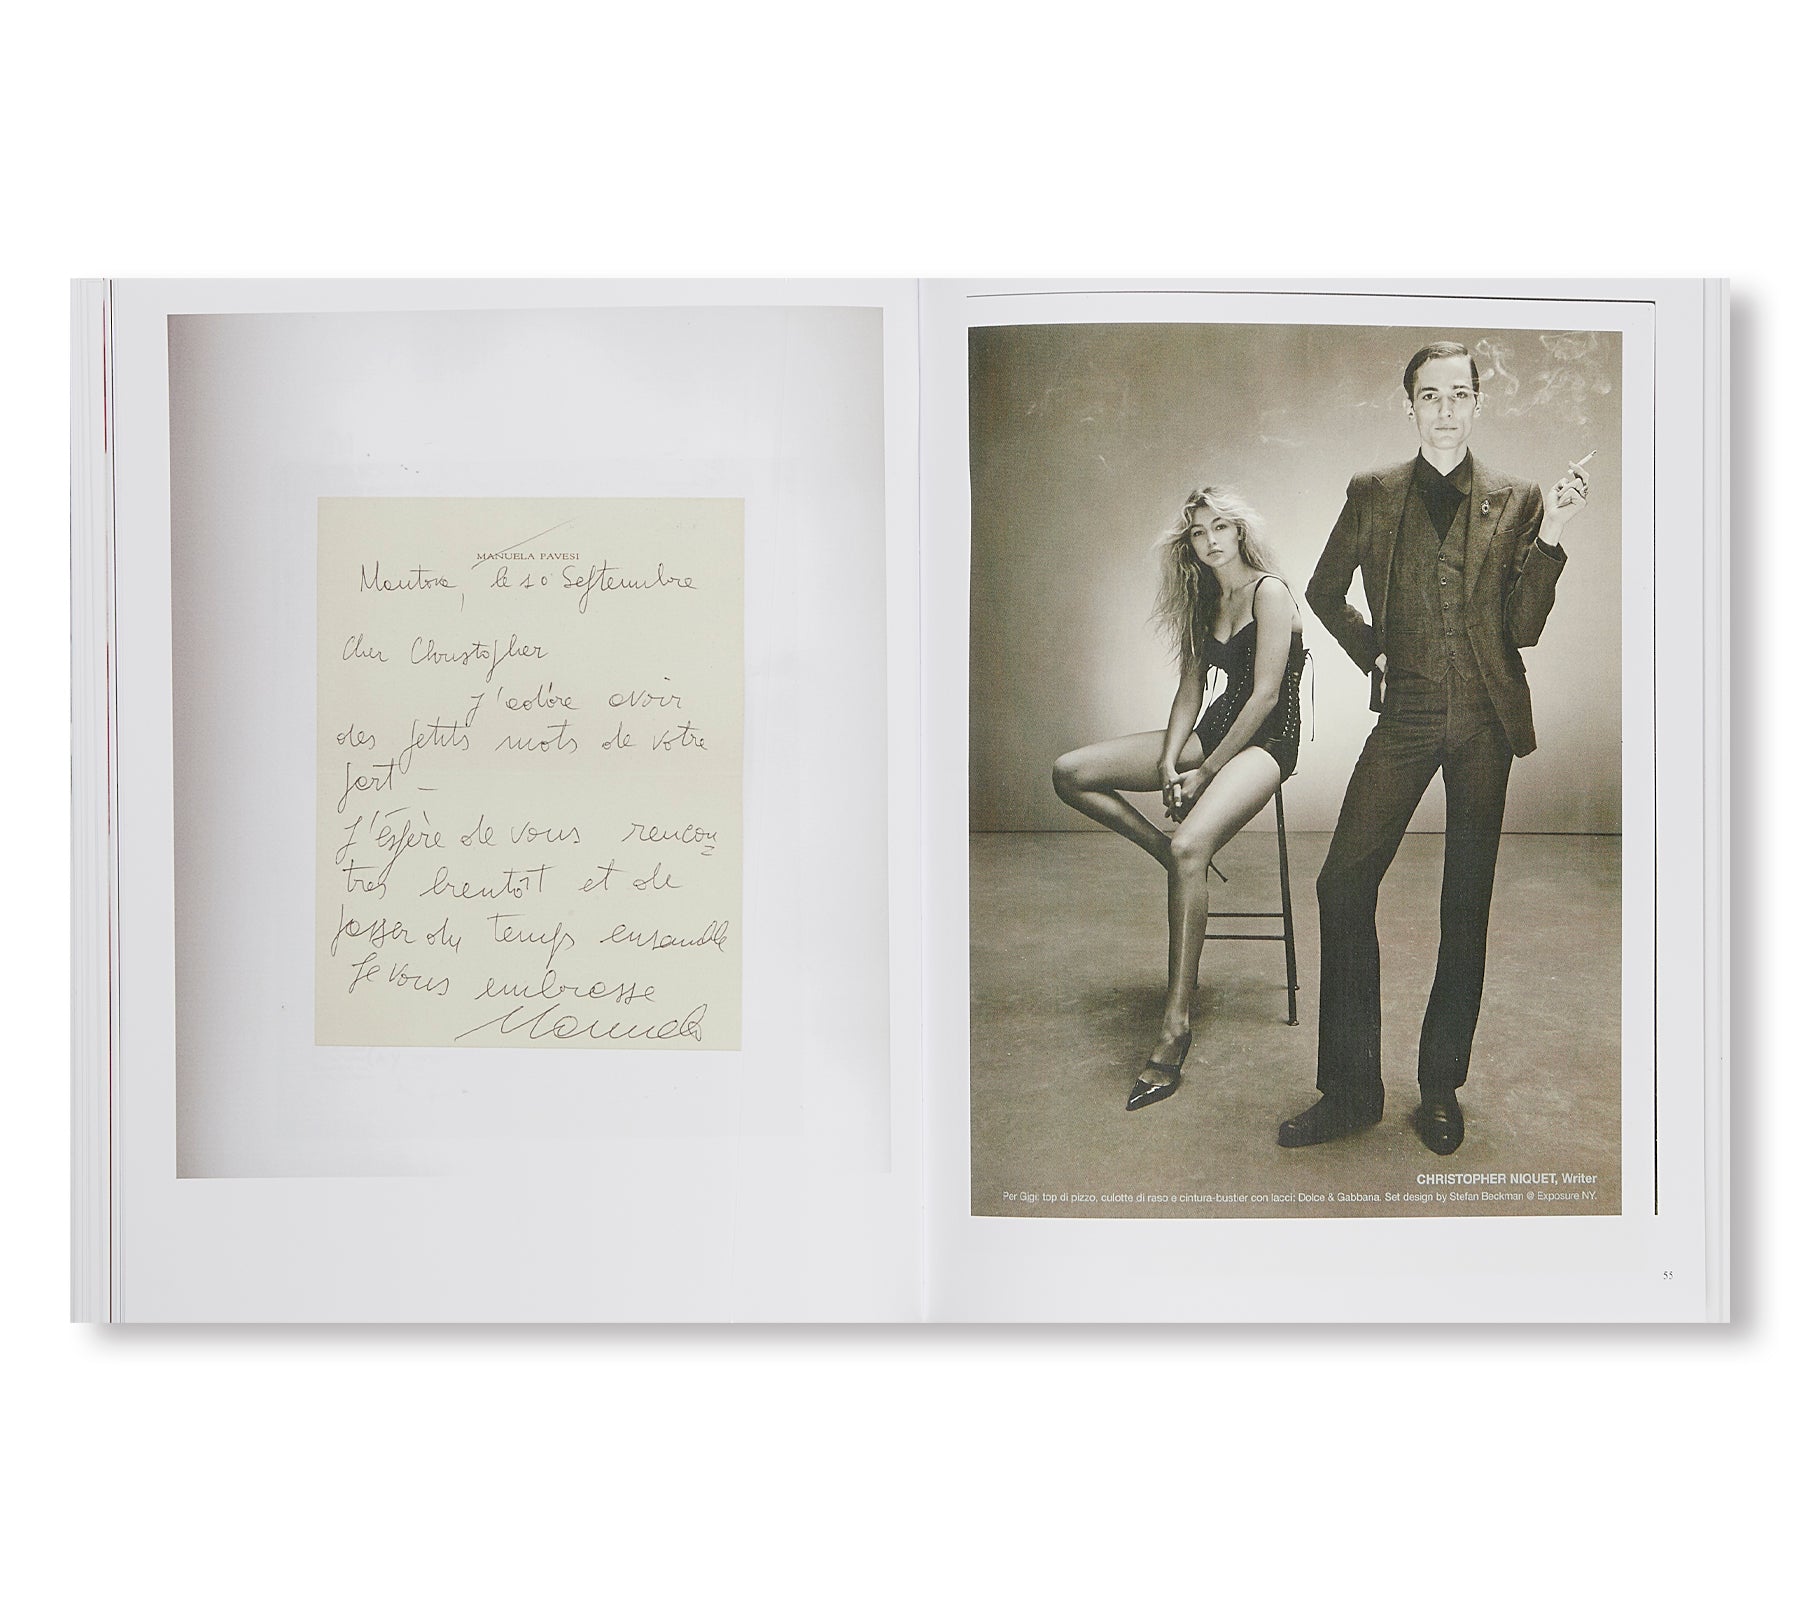 MANUELA PAVESI
Mantova, le 10 Septembre
Cher Christopher
J'adore avoir
des petits mots de votre
part –
J'éspère de vous rencon=
tres bientôt et de
passer du temps ensemble
Je vous embrasse
Manuela
CHRISTOPHER NIQUET, Writer
Per Gigi: top di pizzo, culotte di raso e cintura-bustier con lacci: Dolce & Gabbana. Set design by Stefan Beckman @ Exposure NY.
55